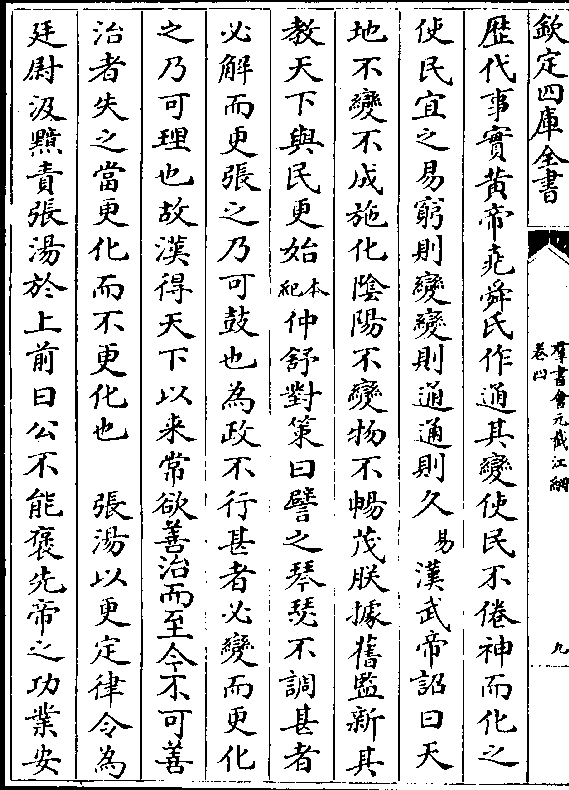 欽定四庫全書
羣書會元截江網
卷四
九
歴代事實黃帝堯舜氏作通其變使民不倦神而化之
使民宜之易窮則變變則通通則久易漢武帝詔曰天
地不變不成施化隂陽不變物不暢茂朕據舊監新其
教天下與民更始本紀仲舒對策曰譬之琴瑟不調甚者
必解而更張之乃可鼓也為政不行甚者必變而更化
之乃可理也故漢得天下以来常欲善治而至今不可善
治者失之當更化而不更化也　張湯以更定律令為
廷尉汲黯責張湯於上前曰公不能褒先帝之功業安